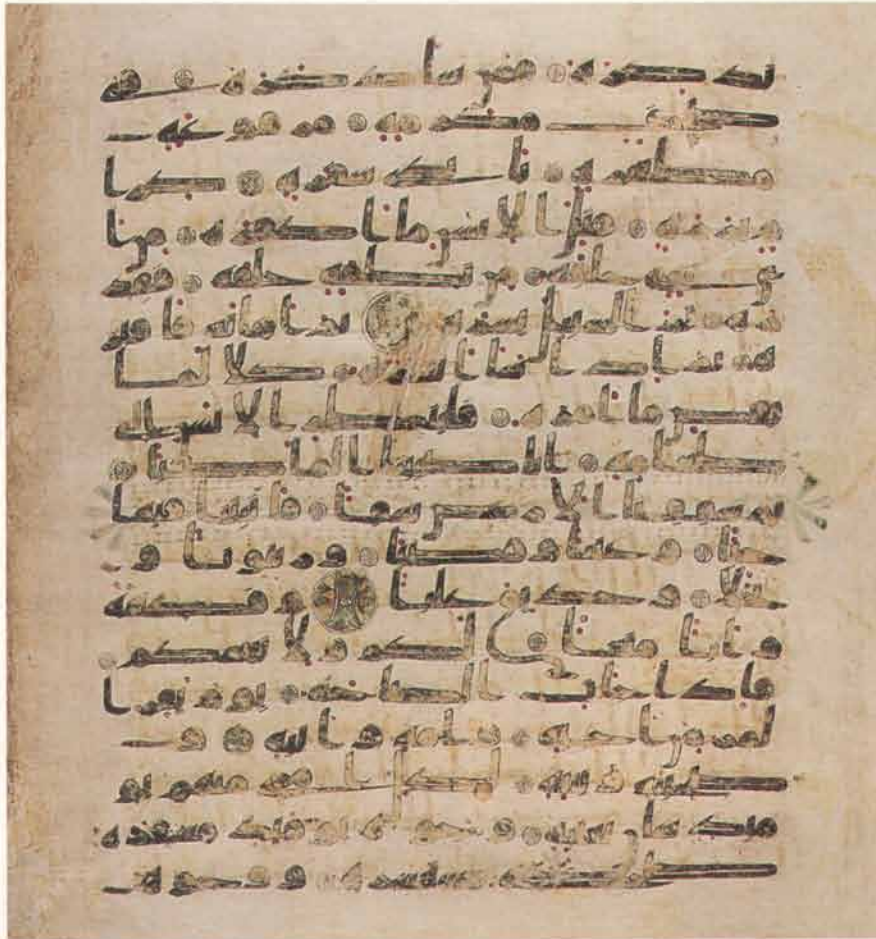 تذكرة فمن شا ذكره في
صحف مكرمة مرفوعة
مطهرة بايدي سفرة كرا
م بررة قتل الانسن ما اكفره من ا
ي شي خلقه من نطفة خلقه فقد
ره ثم السبيل يسره ثم اماته فاقبر
ه ثم اذا شا انشره كلا لما
يقض ما امره فلينظر الانسن الى
طعامه انا صببنا الما صبا
ثم شققنا الارض شقا فانبتنا فيها
حبا وعنبا وقضبا وزيتونا و
نخلا وحدائق غلبا وفكهة
وابا متعا لكم ولانعمكم
فاذا جات الصاخة يوم يفر ا
لمر من اخيه وامه وابيه و
صحبته وبنيه لكل امرى منهم يو
مئذ شان يغنيه وجوه يومئذ مسفرة
ضاحكة مستبشرة ووجوه